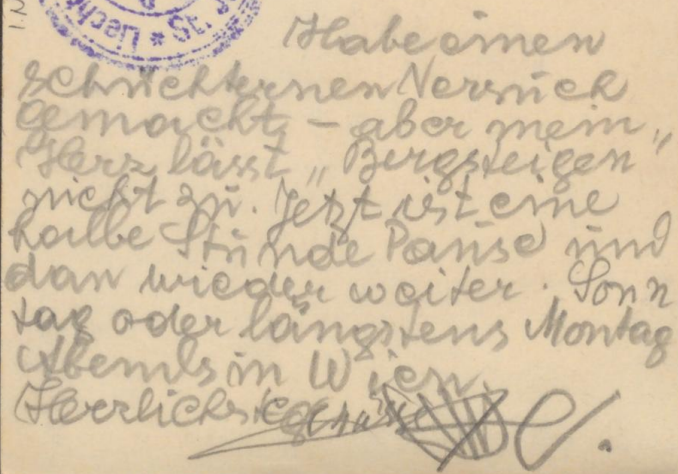 I.N
Liecht * St.
Habe einen
schüchternen Versuch
gemacht, – aber mein „
Herz lässt „Bergsteigen"
nicht zu. Jetzt ist eine
halbe Stunde Pause und
dan wieder weiter. Sonn
tag oder längstens Montag
Abends in Wien.
Herzlichste Grüsse